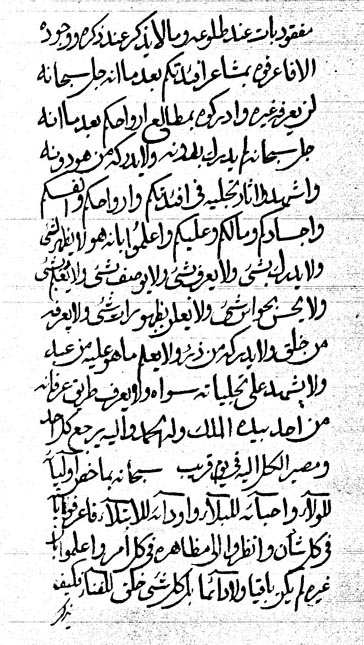 مفقود بات عند طلوعه وما لا يذكر عند ذكره ووجوده
الا فاعرفوه بمشاعر افئدتكم بعد ما انه جل سبحانه
لن يعرفه غيره وادركوه بمطالع ارواحكم بعد ما انه
جل سبحانه لم يدرك بدونه ولا يدركه من هو دونه
واشهدوا اثار تجليه في افئدتكم وارواحكم وانفسكم
واجسادكم ومالكم وعليكم واعلموا بانه هو لا يظهر بشئ
ولا يدرك بشئ ولا يعرف بشئ ولا يوصف بشئ ولا بشئ
ولا يحس بحواس شئ ولا يعلن بظهورات شئ ولا يعرفه
من خلق ولا يدركه من ذرء ولا يعلم ما هو عليه من عبد
ولا يشهد على تجلياته سواه ولا يعرف طرق عرفانه
من احد بيده الملك وله الحمد واليه يرجع كل احد
ومصير الكل اليه في يوم قريب سبحانه ما خص اوليائه
للولاء واحبائه للبلاء واودائه للابتلاء فاعرفوا
في كل شأن وانظروا الى مظاهره في كل امر واعلموا بان
غيره لم يكن باقيا ولا دائما بل كل شئ خلق للفناء فكيف